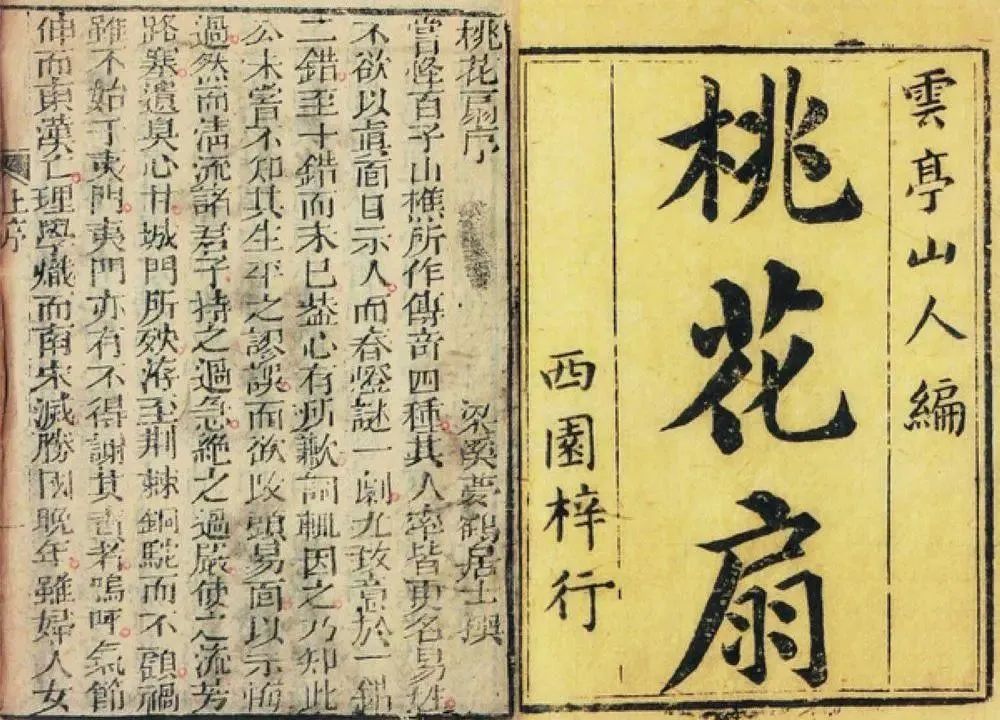 雲亭山人編
桃花扇
西園梓行
桃花扇序 梁溪夢鶴居士撰
嘗怪百子山樵所作傳奇四種其人率皆更名易姓
不欲以眞面目示人而春燈謎一劇尤致意於一錯
二錯至十錯而未已蓋心有所歉詞輒因之乃知此
公未嘗不知其生平之謬誤而欲改頭易面以示悔
過然而清流諸君子持之過急絶之過嚴使之流芳
路塞遺臭心甘城門所殃洊至荆棘銅駝而不顧禍
雖不始于夷門夷門亦有不得謝其責者嗚呼氣節
伸而東漢亡理學熾而南宋滅勝國晚年雖婦人女
上序